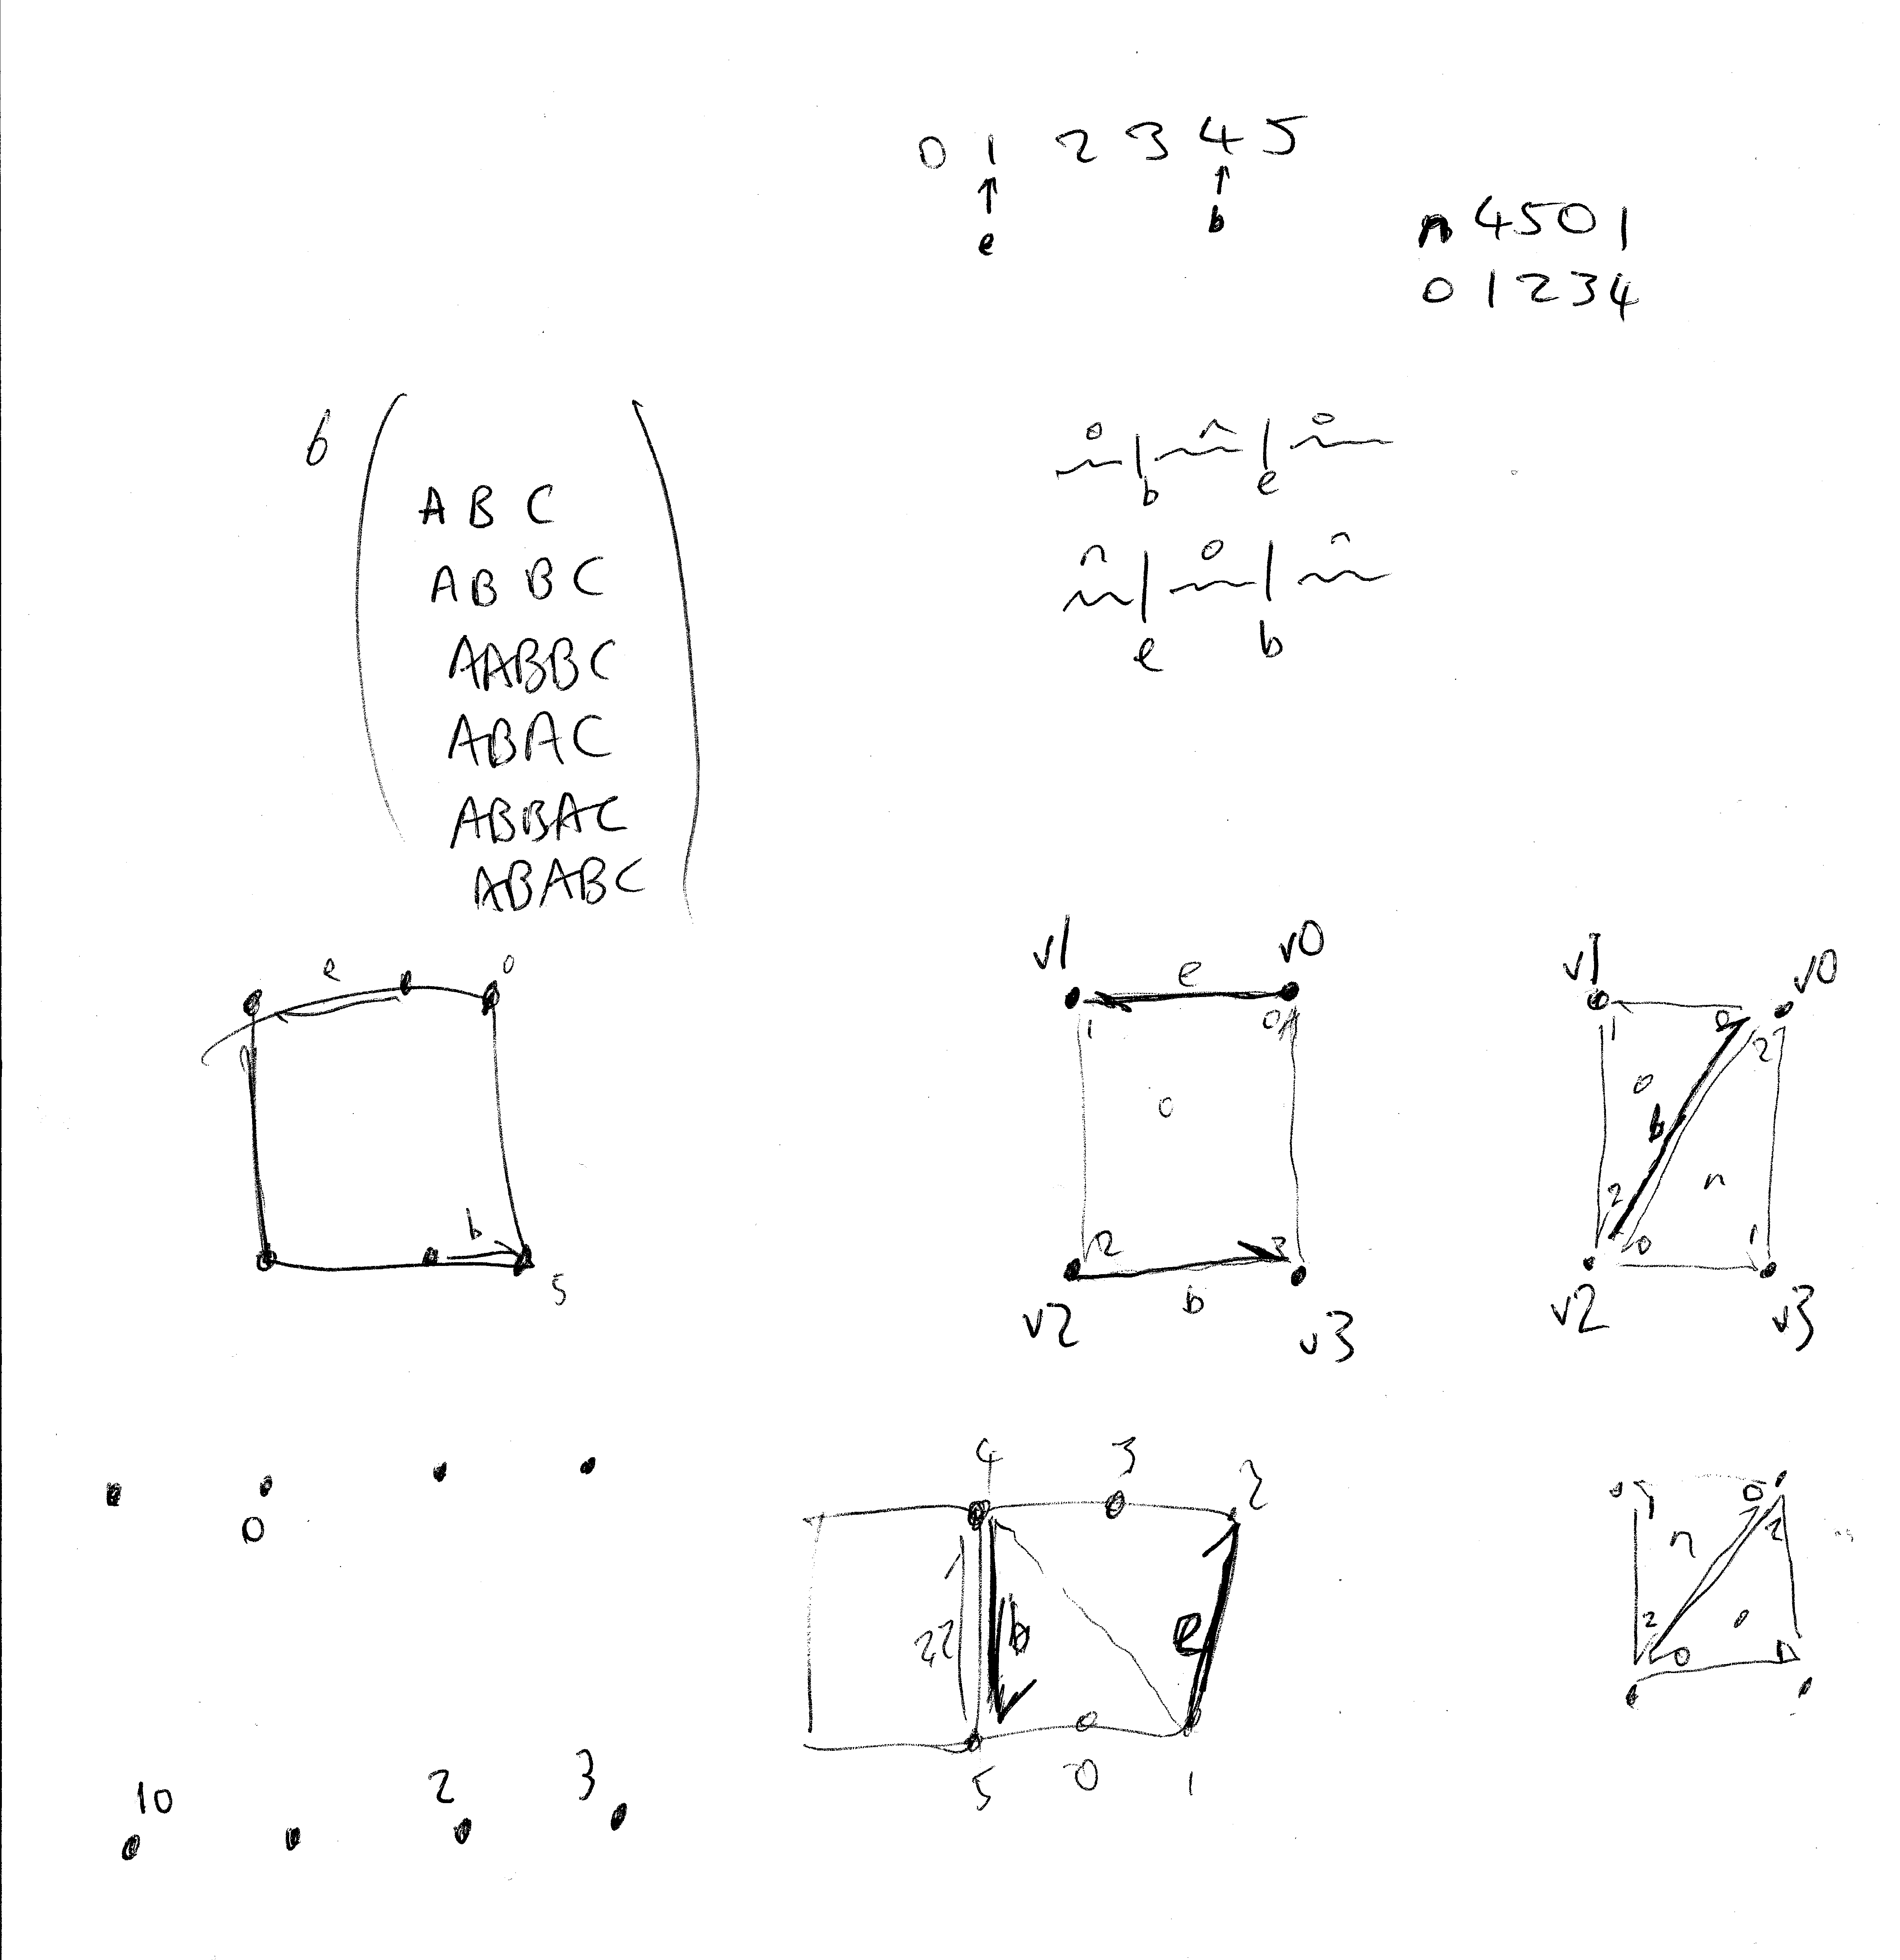 0 1 2 3 4 5
e b
n 4 5 0 1
0 1 2 3 4
6
A B C
A B B C
A A B B C
A B A C
A B B A C
A B A B C
o n o
b e
n o n
e b
e 0
b
5
v1 e v0
1 0
o
2 3
v2 b v3
v1 v0
1 0 2
o
b
n
2 0 1
v2 v3
0
10 2 3
4 3 2
b e
5 0 1
1 0 2
n
2 o
0 1